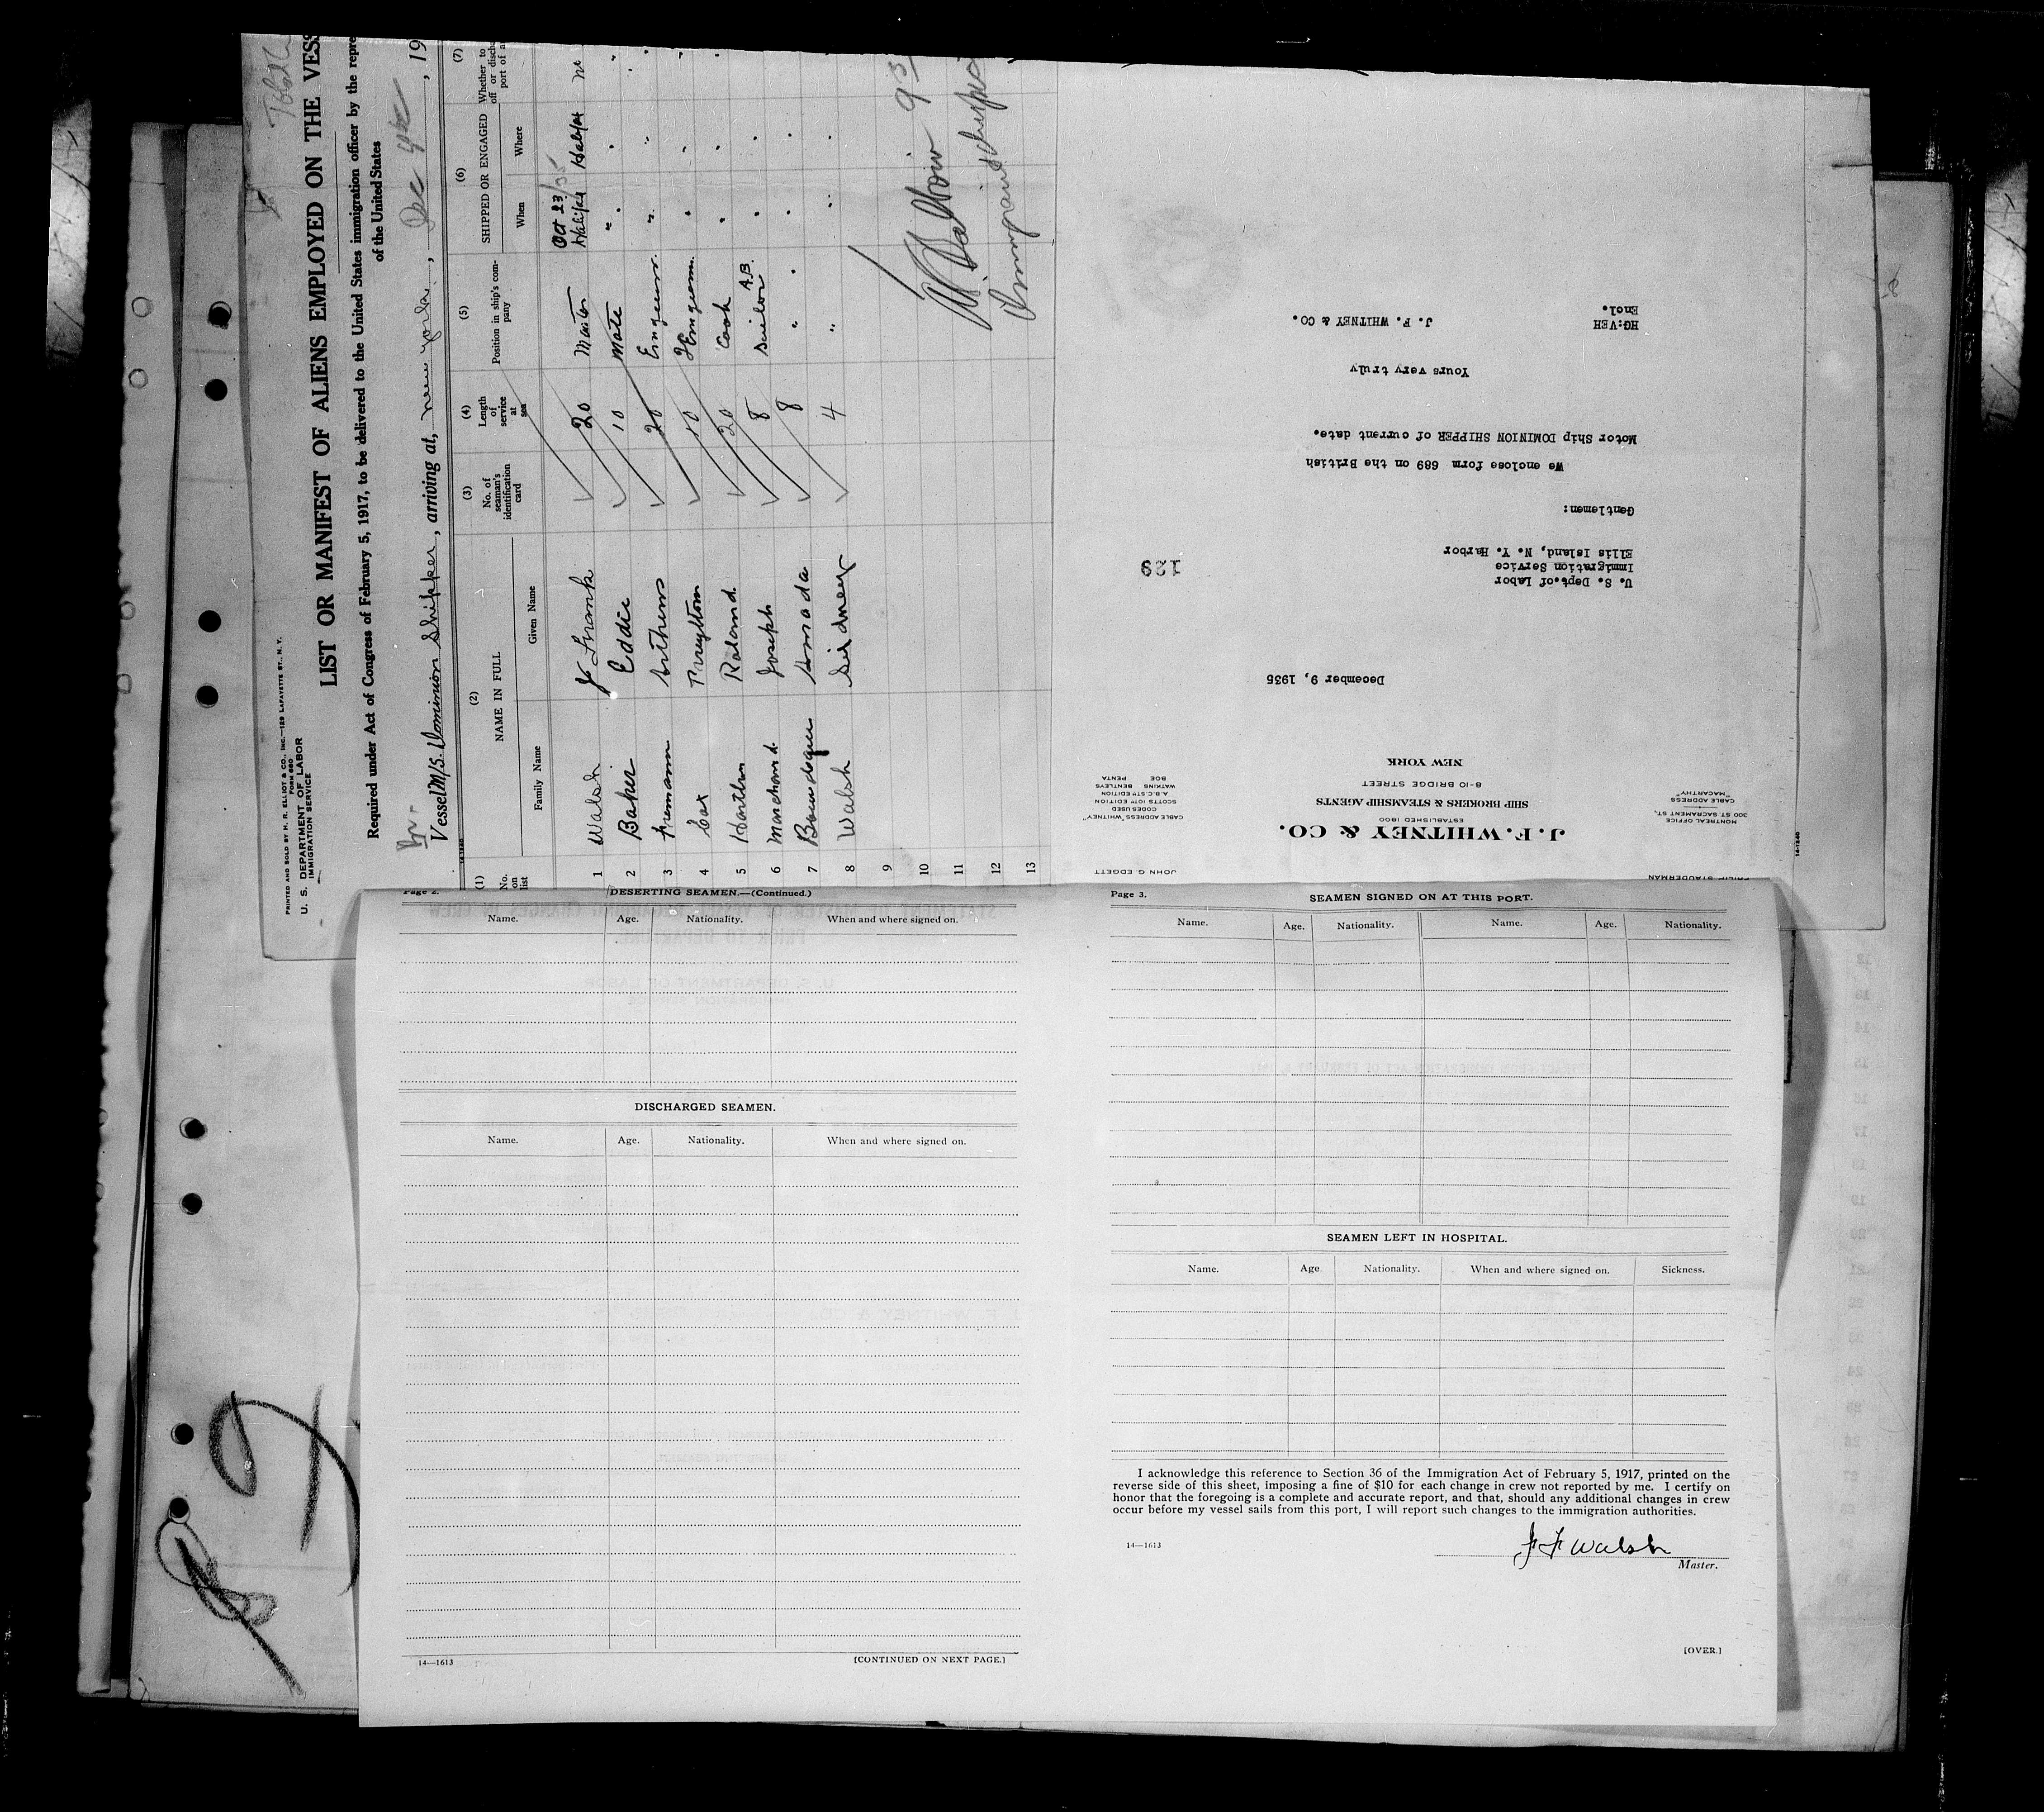 PRINTED AND SOLD BY H. R. ELLIOT & CO., INC.—129 LAFAYETTE ST., N. Y.
FORM 680
U. S. DEPARTMENT OF LABOR
IMMIGRATION SERVICE
LIST OR MANIFEST OF ALIENS EMPLOYED ON THE VESS
Required under Act of Congress of February 5, 1917, to be delivered to the United States immigration officer by the repre
of the United States
Vessel M/S. Dominion Shipper, arriving at, new york, Dec 4th, 19
(1) No. on list
(2) NAME IN FULL
Family Name Given Name
(3) No. of seaman's identification card
(4) Length of service at sea
(5) Position in ship's company
(6) SHIPPED OR ENGAGED
When Where
(7) Whether to
off or disch
port of a
1 Walsh J Frank 20 Master Oct 23/35 Halifax Halifax no
2 Baker Eddie 10 Mate " "
3 20 Engineer " "
4 Cox 10 2 Engineer " "
5 Roland 20 Cook " "
6 Marchand Joseph 8 Sailor A.B. " "
7 8 " " " "
8 Walsh Sidney 4 " " "
9
10
11
12
13
JOHN G EDGETT
PHILIP STAUDERMAN
J. F. WHITNEY & CO.
ESTABLISHED 1900
SHIP BROKERS & STEAMSHIP AGENTS
8-10 BRIDGE STREET
NEW YORK
MONTREAL OFFICE
300 ST. SACRAMENT ST.,
CABLE ADDRESS
"MACARTHY"
CABLE ADDRESS "WHITNEY"
CODES USED
SCOTTS 10TH EDITION
A.B.C. 5TH EDITION
WATKINS BENTLEYS
BOE PENTA
14-1240
December 9, 1935
129
U. S. Dept.of Labor
Immigration Service
Ellis Island, N. Y. Harbor
Gentlemen:
We enclose form 689 on the British
Motor Ship DOMINION SHIPPER of current date.
Yours very truly
J. F. WHITNEY & CO.
HG:VEH
Encl.
Page 2.
DESERTING SEAMEN.—(Continued.)
Name. Age. Nationality. When and where signed on.
DISCHARGED SEAMEN.
Name. Age. Nationality. When and where signed on.
14—1613
[CONTINUED ON NEXT PAGE.]
Page 3.
SEAMEN SIGNED ON AT THIS PORT.
Name. Age. Nationality. Name. Age. Nationality.
SEAMEN LEFT IN HOSPITAL.
Name. Age Nationality. When and where signed on. Sickness.
I acknowledge this reference to Section 36 of the Immigration Act of February 5, 1917, printed on the
reverse side of this sheet, imposing a fine of $10 for each change in crew not reported by me. I certify on
honor that the foregoing is a complete and accurate report, and that, should any additional changes in crew
occur before my vessel sails from this port, I will report such changes to the immigration authorities.
14—1613
J F Walsh
Master.
[OVER.]